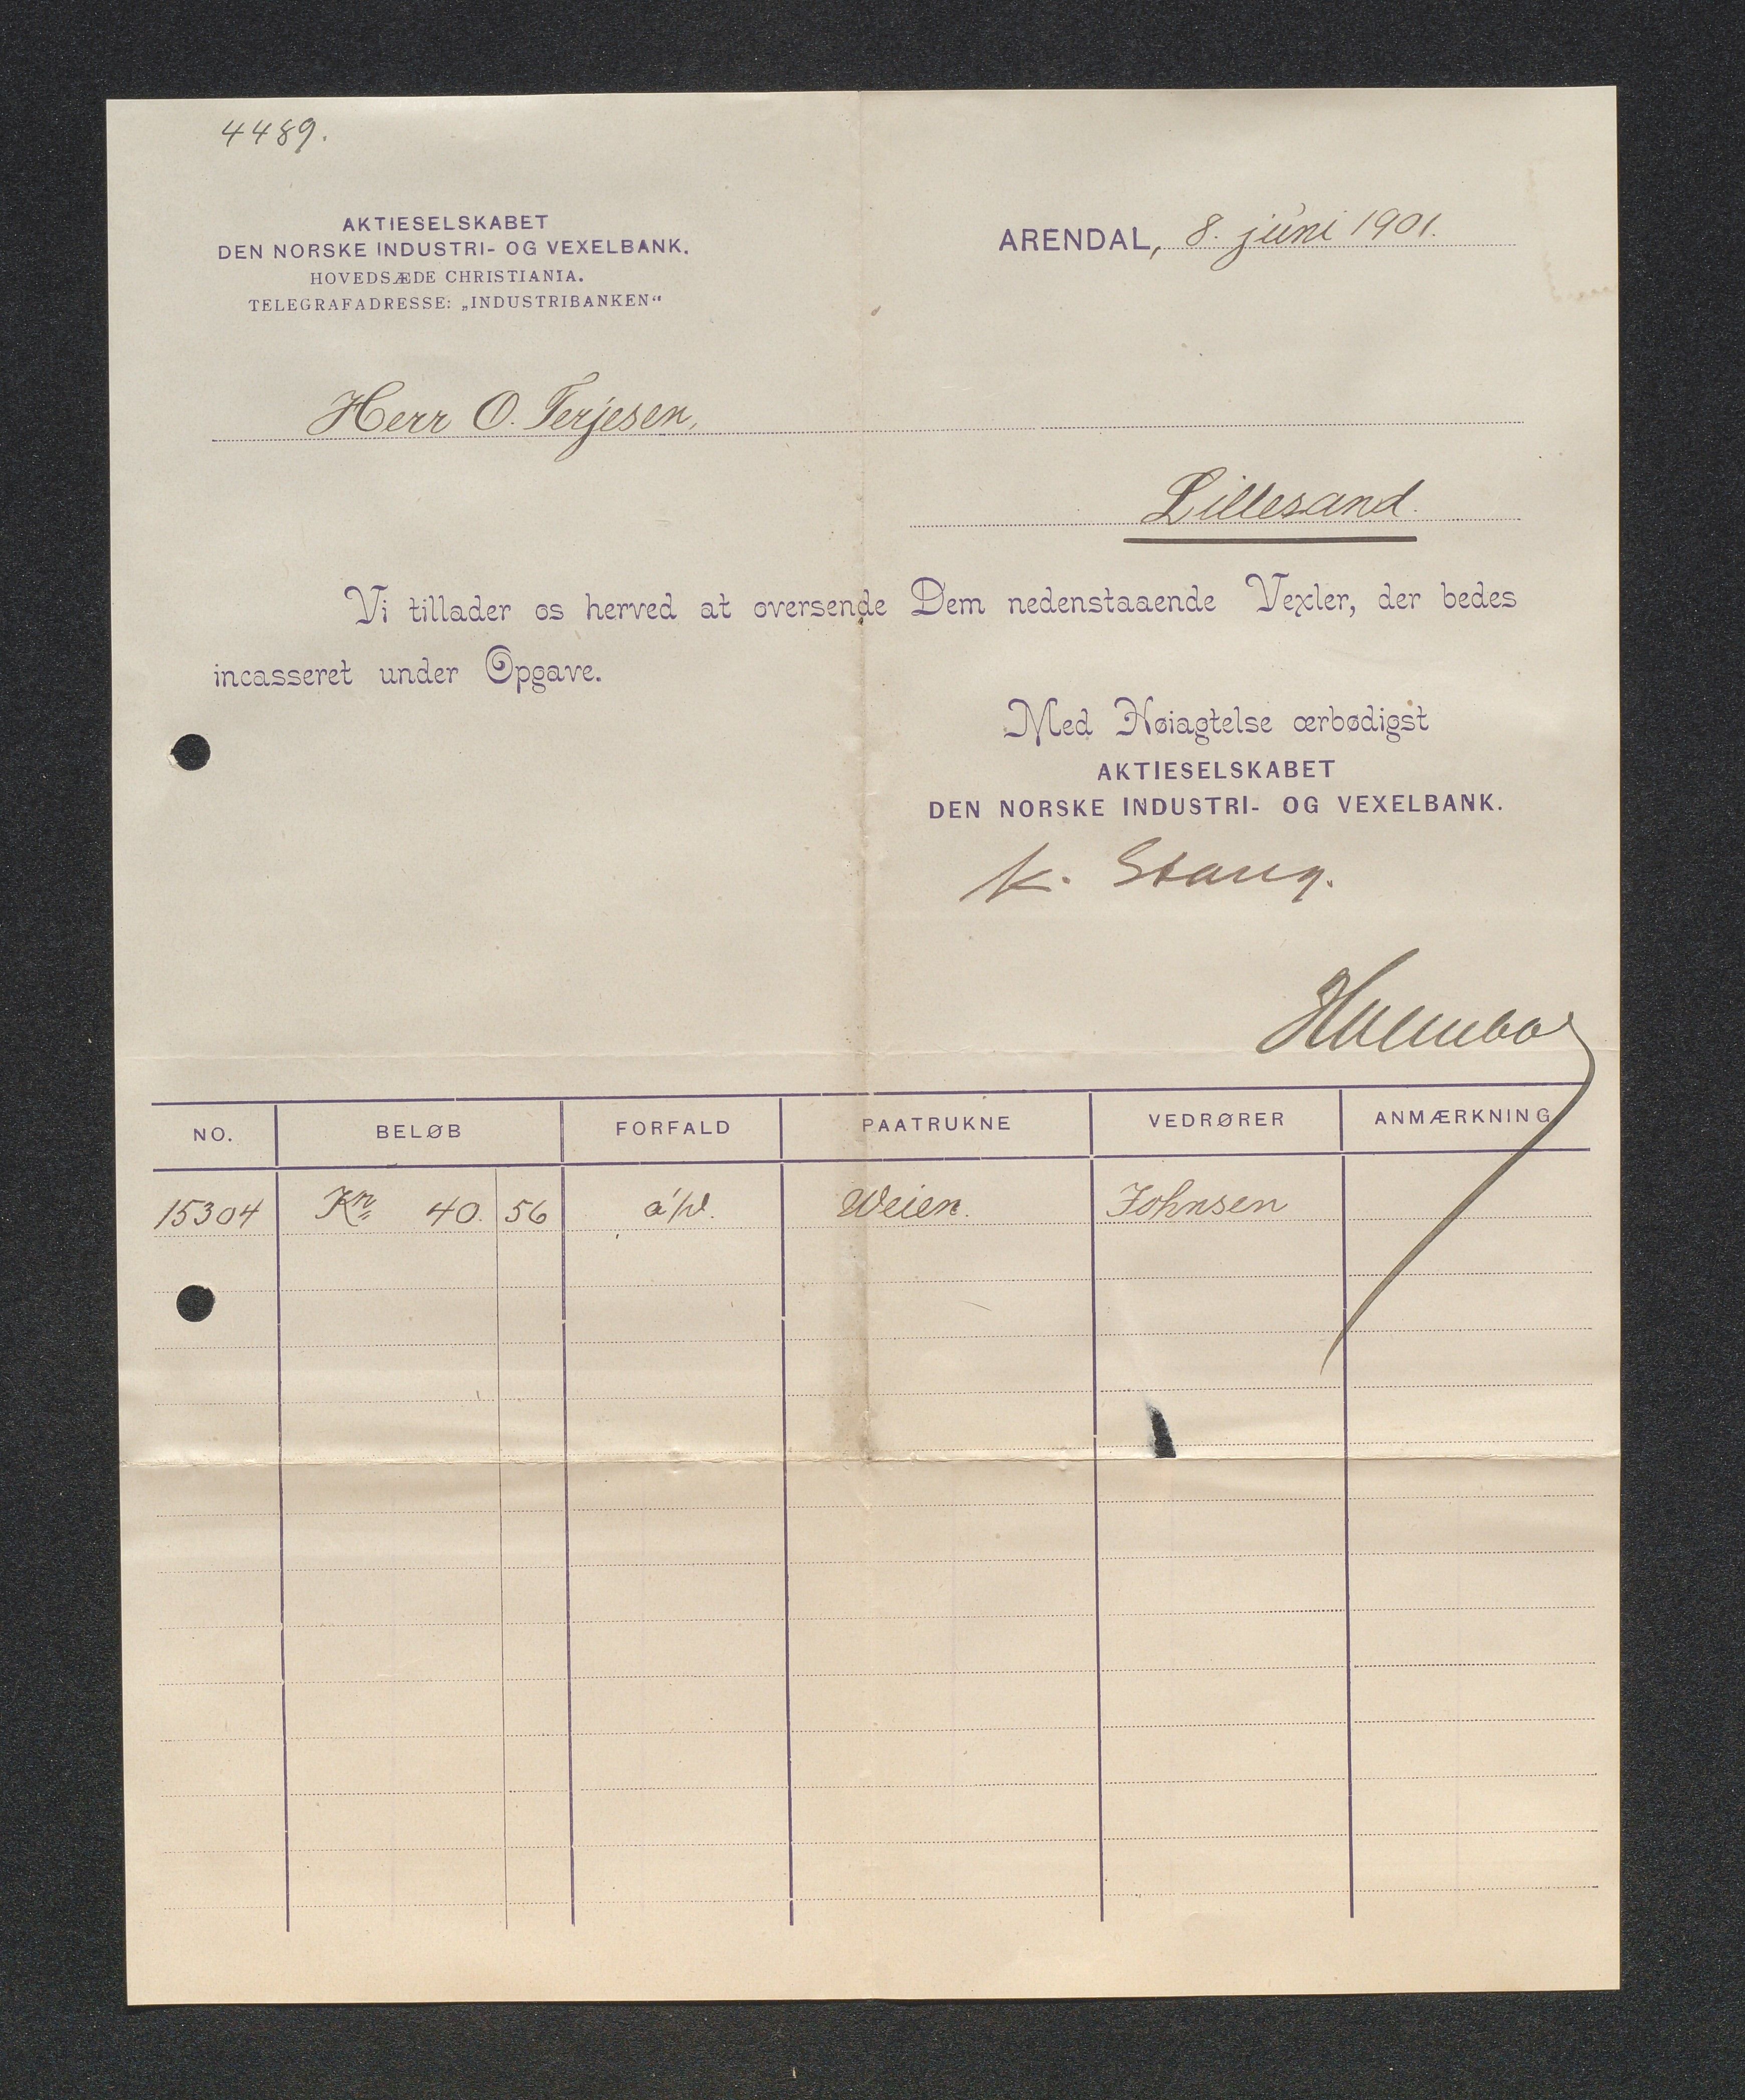 4489.
AKTIESELSKABET
DEN NORSKE INDUSTRI- OG VEXELBANK.
HOVEDSÆDE CHRISTIANIA.
TELEGRAFADRESSE: „INDUSTRIBANKEN“
ARENDAL, 8. juni 1901.
Herr O. Terjesen,
Lillesand.
Vi tillader os herved at oversende Dem nedenstaaende Vexler, der bedes
incasseret under Opgave.
Med Høiagtelse ærbødigst
AKTIESELSKABET
DEN NORSKE INDUSTRI- OG VEXELBANK.
K. Stang.
NO. BELØB FORFALD PAATRUKNE VEDRØRER ANMÆRKNING
15304 Kr 40. 56 a/v. Weien. Johnsen